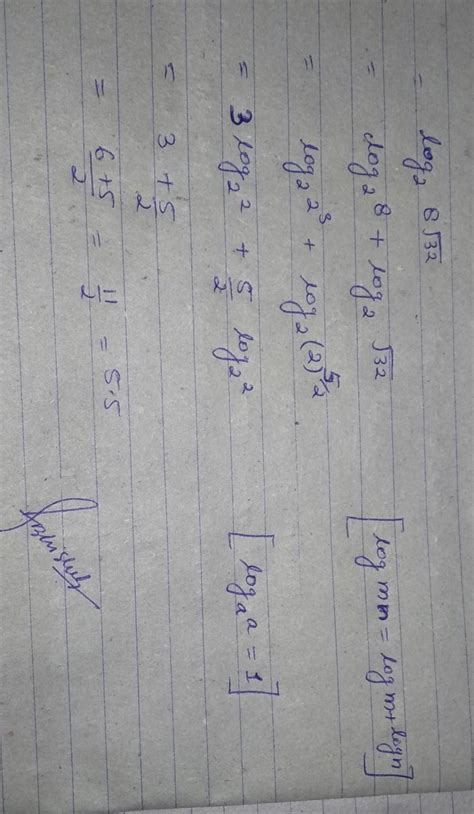 = log₂ 8√32
= log₂ 8 + log₂ √32 [log mn = log m + log n]
= log₂ 2³ + log₂ (2)^5/2
= 3 log₂ 2 + 5/2 log₂ 2 [logₐ a = 1]
= 3 + 5/2
= 6+5/2 = 11/2 = 5.5